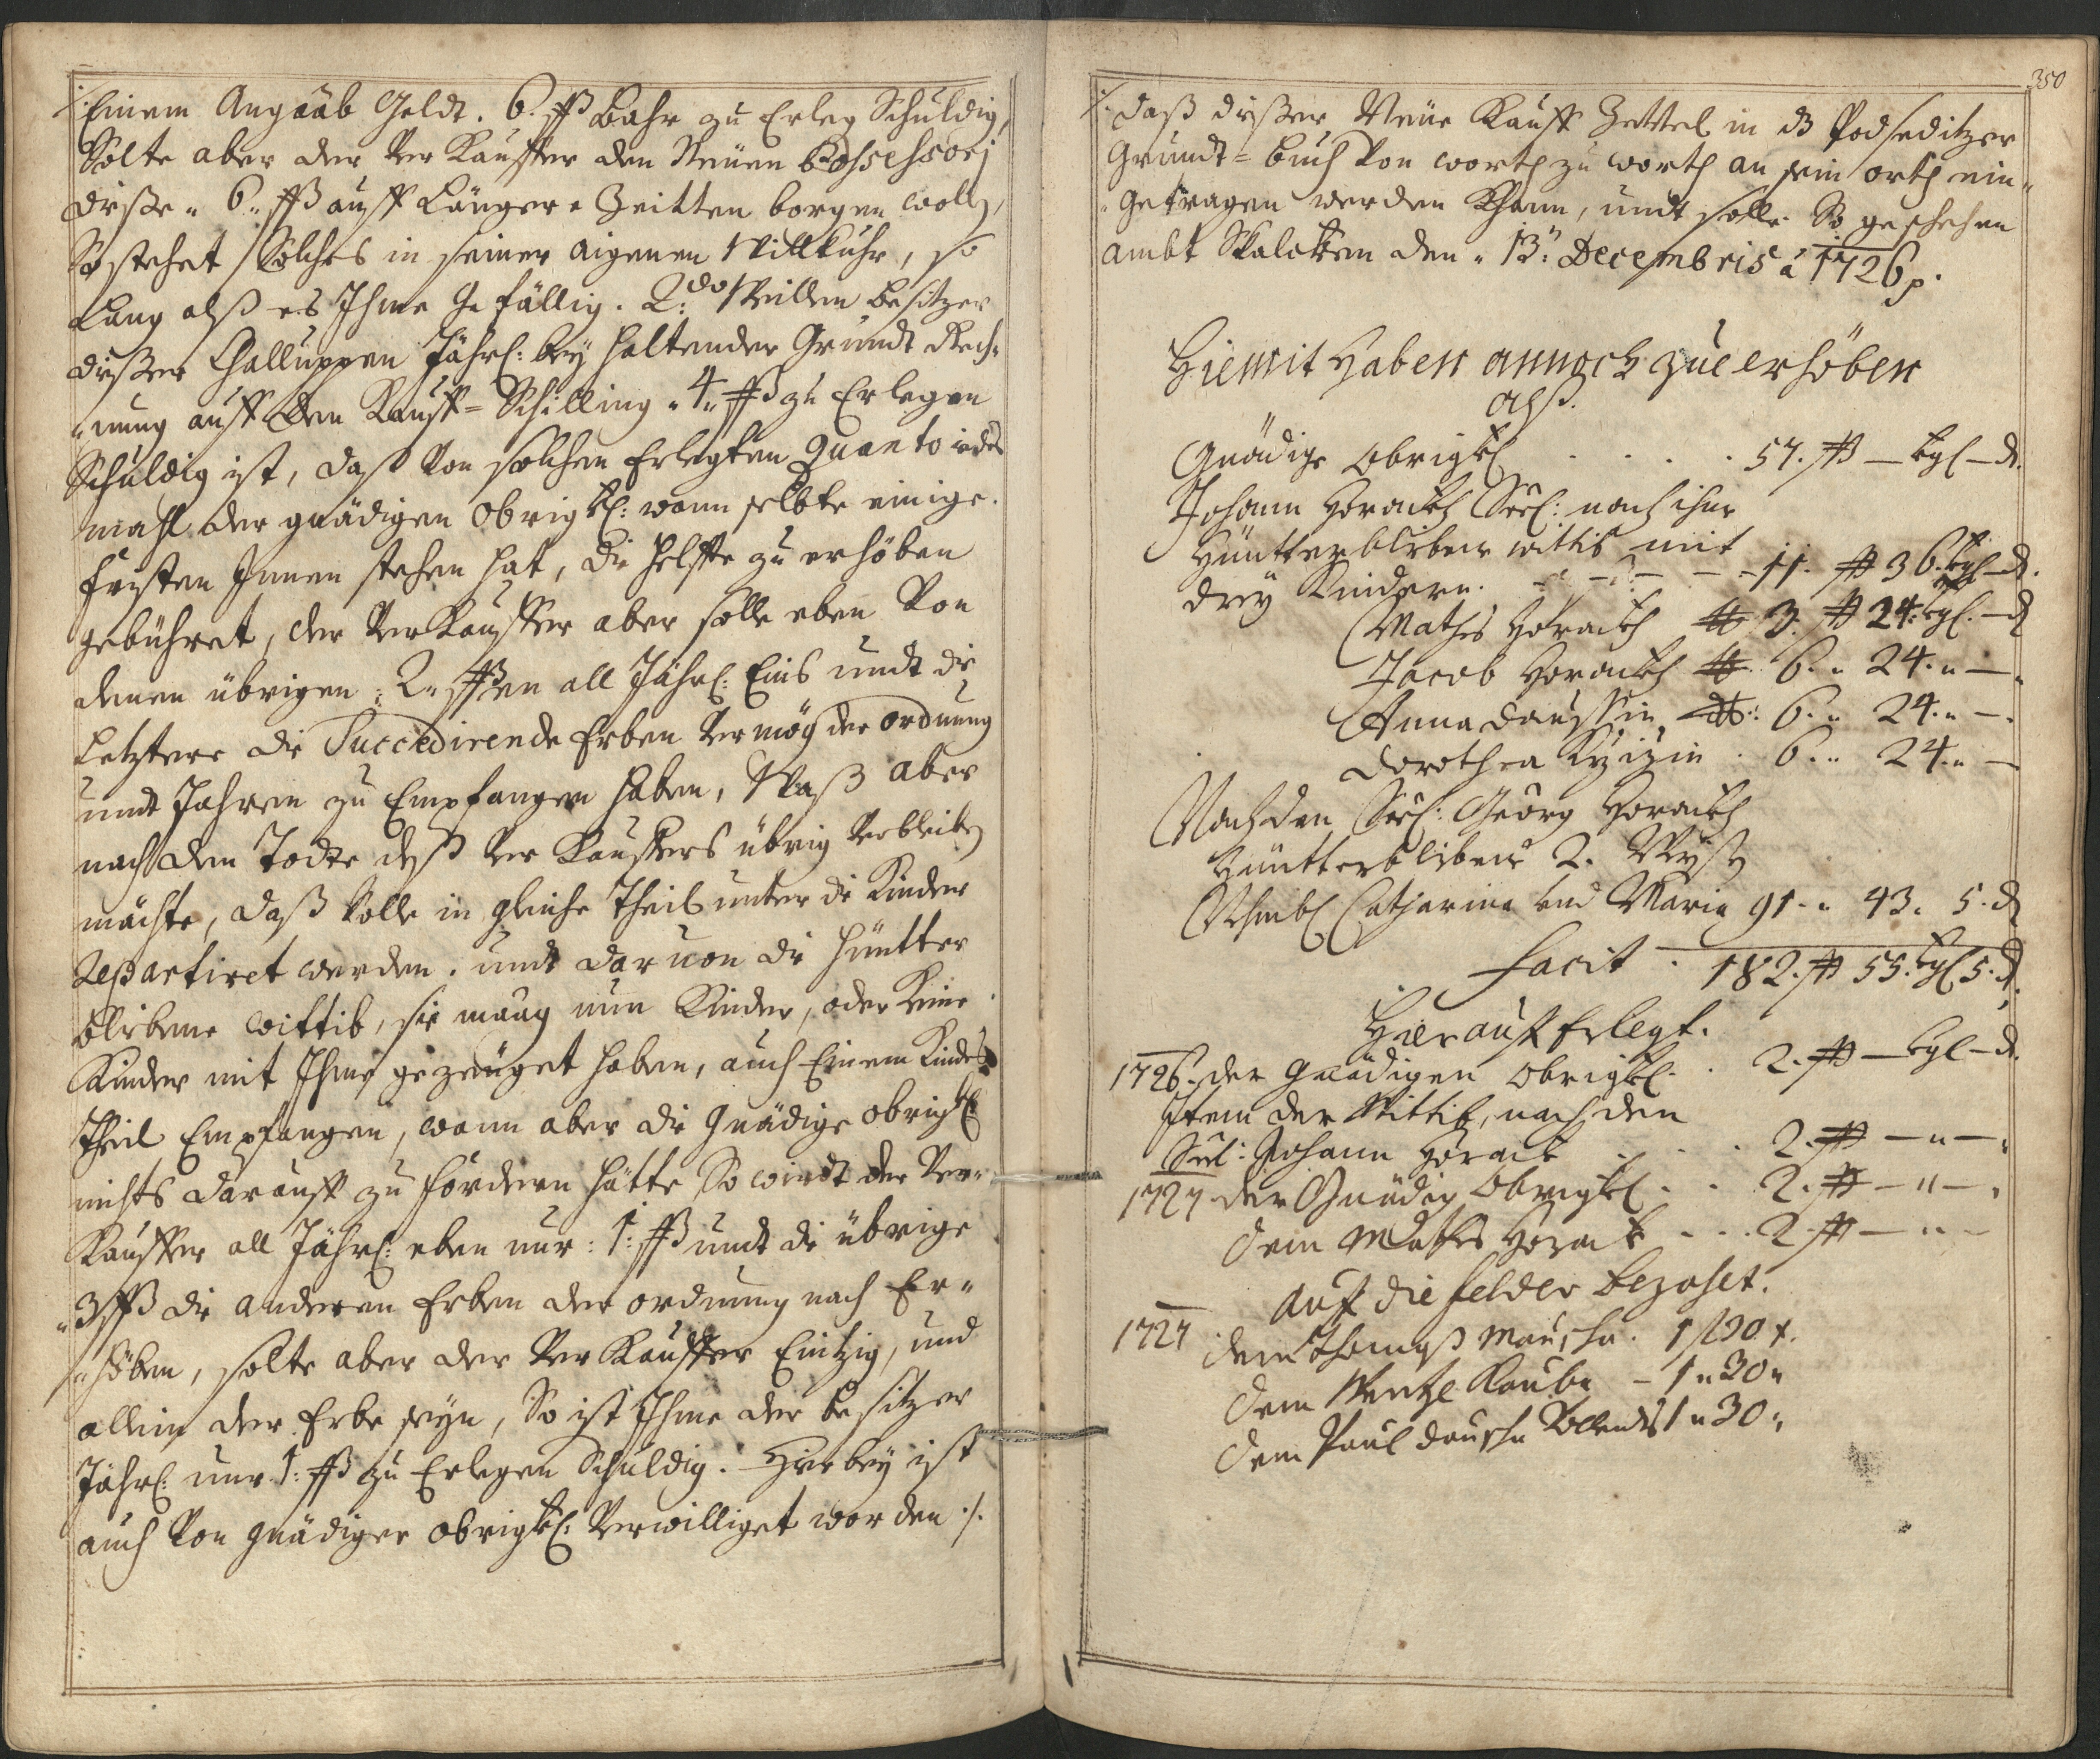 Einem Angaab Geldt. 6. ßß Bahr zu Erleg Schuldig,
Solte aber der Verkauffer den Neüen Possessorj
diße „ 6 „ ßß auff Länger „ Zeitten borgen wolle,
So stehet Solches in seiner aigenen Willkuhr, so
Lang alß es Ihme Gefällig. 2:do Weillen besitzer
dißer Challuppen Jährl: bey haltender Grundt Rech„
„nung auff den Kauff=Schilling „ 4 „ ßß zu Erlegen
Schuldig ist, daß Von solchen Erlegten Quanto iedes
mahl der gnädigen Obrigkl: wann selbte einige
fristen Innen stehen hat, die helffte zu erhöben
gebühret, der Verkauffer aber solle eben Von
denen übrigen „ 2 „ ßßen all Jährl: Eins undt die
Letztere die Succedirende Erben Vermög der ordnung
undt Jahren zu Empfangen haben, Waß aber
nach dem Todte deß Verkauffers übrig Verbleiben
möchte, daß solle in gleiche Theil unter die Kinder
Repartiret werden. undt daruon die hüntter
blibene Wittib, sie maag nun Kinder, oder Keine
Kinder mit Ihme gezeüget haben, auch Einem Kindes
Theil Empfangen, wann aber die Gnädige Obrigkl
nichts darauff zu fördern hätte So wirdt der Ver„
Kauffer all Jährl: eben nur: 1: ßß undt die übrige
„3 ßß die anderen Erben der ordnung nach Er„
„höben, solte aber der Verkauffer Eintzig, und
allein der Erbe seyn, So ist Ihme der besitzer
Jährl: nur 1: ßß zu Erlegen Schuldig. Hierbey ist
auch Von Gnädiger Obrigkl: Verwilliget worden ./.
350
./. daß dißer Neüe Kauff Zettel in dz Podseditzer
Grundt=buch Von worth zu worth an sein orth ein„
„Getragen werden Khann, undt solle. So geschehen
ambt Skalcken den „ 13: Decembris ao 1726 p.
Hiemit Haben annoch zue erhöben
alß.
Gnädige Obrigkl . . . . 57. ßß — kgl — d.
Johann Horackh Seel: nach ihme
Hüntterblibene wittib mit
drey Kindern. — — — 11. ßß 36. kgl — d.
Mathes Horackh 3. ßß 24. kgl. — d
Jacob Horackh 6. „ 24. „ —
Anna Daussin 6. „ 24. „ —
Dorothea . 6. „ 24. „ —
Nach den Seel. Georg Horackh
Hüntterblibene 2. Weyß
Nahmbl Catharina und Maria 91. „ 43. 5. d
Facit . 182. ßß 55. kgl 5. d.
Hierauff Erlegt.
1726. der Gnädigen Obrigkl. . 2. ßß — kgl — d.
Item der Wittib, nach den
Seel: Johann Horack . . . 2. ßß — „ —
1727 der Gnädig Obrigkl . . 2. ßß — „ —
dem Mathes Horack . . . 2 ßß — „ —
Auff die felder bezahlt.
1727 dem Thomaß 1 f 30 x.
dem Wentzl Kauba — 1 „ 30 „
dem Paul 1 „ 30 „